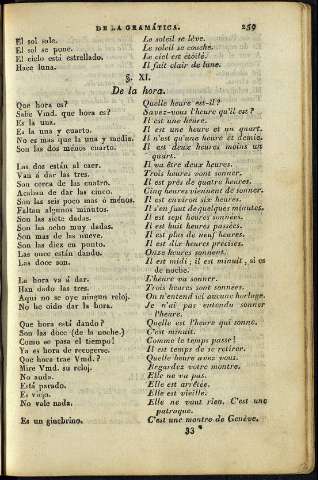 DE LA GRAMÁTICA. 259
El sol sale. Le soleil se lève.
El sol se pone. Le soleil se couche.
El cielo está estrellado. Le ciel est étoilé.
Hace luna. Il fait clair de lune.
§. XI.
De la hora.
Que hora es? Quelle heure est-il?
Sabe Vmd. que hora es? Savez-vous l'heure qu'il est?
Es la una. Il est une heure.
Es la una y cuarto. Il est une heure et un quart.
No es mas que la una y media. Il n'est qu'une heure et demie.
Son las dos ménos cuarto. Il est deux heures moins un
quart.
Las dos están al caer. Il va être deux heures.
Van á dar las tres. Trois heures vont sonner.
Son cerca de las cuatro. Il est près de quatre heures.
Acaban de dar las cinco. Cinq heures viennent de sonner.
Son las seis poco mas ó ménos. Il est environ six heures.
Faltan algunos minutos. Il s'en faut de quelques minutes.
Son las siete dadas. Il est sept heures sonnées.
Son las ocho muy dadas. Il est huit heures passées.
Son mas de las nueve. Il est plus de neuf heures.
Son las diez en punto. Il est dix heures précises.
Las once están dando. Onze heures sonnent.
Las doce son. Il est midi ; il est minuit, si c'est
de noche.
La hora va á dar. L'heure va sonner.
Han dado las tres. Trois heures sont sonnées.
Aqui no se oye ningun reloj. On n'entend ici aucune horloge.
No he oido dar la hora. Je n'ai pas entendu sonner
l'heure.
Que hora está dando? Quelle est l'heure qui sonne.
Son las doce (de la noche.) C'est minuit.
Como se pasa el tiempo! Comme le temps passe!
Ya es hora de recogerse. Il est temps de se retirer.
Que hora trae Vmd.? Quelle heure avez vous.
Mire Vmd. su reloj. Regardez votre montre.
No anda. Elle ne va pas.
Está parado. Elle est arrêtée.
Es viejo. Elle est vieille.
No vale nada. Elle ne vaut rien. C'est une
patraque.
Es un ginebrino. C'est une montre de Genève.
33 *